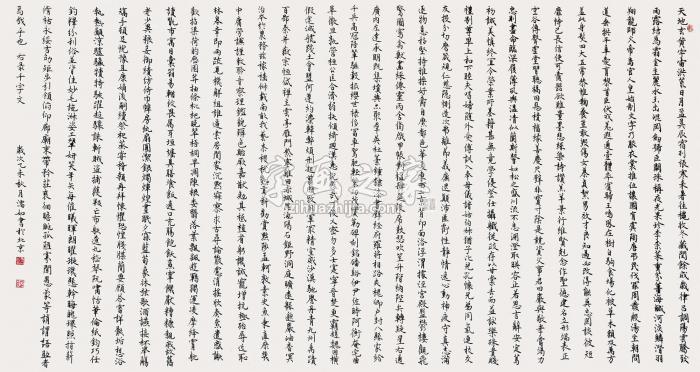 天地玄黃宇宙洪荒日月盈昃辰宿列張寒來暑往秋收冬藏閏餘成歲律呂調陽雲騰致
雨露結為霜金生麗水玉出崑岡劍號巨闕珠稱夜光果珍李柰菜重芥薑海鹹河淡鱗潛羽
翔龍師火帝鳥官人皇始制文字乃服衣裳推位讓國有虞陶唐弔民伐罪周發殷湯坐朝問
道垂拱平章愛育黎首臣伏戎羌遐邇壹體率賓歸王鳴鳳在樹白駒食場化被草木賴及萬方
蓋此身髮四大五常恭惟鞠養豈敢毀傷女慕貞潔男效才良知過必改得能莫忘罔談彼短
靡恃己長信使可覆器欲難量墨悲絲染詩讚羔羊景行維賢克念作聖德建名立形端表正
空谷傳聲虛堂習聽禍因惡積福緣善慶尺璧非寶寸陰是競資父事君曰嚴與敬孝當竭力
忠則盡命臨深履薄夙興溫凊似蘭斯馨如松之盛川流不息淵澄取映容止若思言辭安定篤
初誠美慎終宜令榮業所基籍甚無竟學優登仕攝職從政存以甘棠去而益詠樂殊貴賤
禮別尊卑上和下睦夫唱婦隨外受傅訓入奉母儀諸姑伯叔猶子比兒孔懷兄弟同氣連枝交
友投分切磨箴規仁慈隱惻造次弗離節義廉退顛沛匪虧性靜情逸心動神疲守真志滿
逐物意移堅持雅操好爵自縻都邑華夏東西二京背邙面洛浮渭據涇宮殿盤鬱樓觀飛
驚圖寫禽獸畫彩仙靈丙舍傍啟甲帳對楹肆筵設席鼓瑟吹笙升階納陛弁轉疑星右通
廣內左達承明既集墳典亦聚群英杜稿鍾隸漆書壁經府羅將相路俠槐卿戶封八縣家給
千兵高冠陪輦驅轂振纓世祿侈富車駕肥輕策功茂實勒碑刻銘磻溪伊尹佐時阿衡奄宅曲
阜微旦孰營桓公匡合濟弱扶傾綺迴漢惠說感武丁俊乂密勿多士寔寧晉楚更霸趙魏困橫
假途滅虢踐土會盟何遵約法韓弊煩刑起翦頗牧用軍最精宣威沙漠馳譽丹青九州禹跡
百郡秦并嶽宗恒岱禪主云亭雁門紫塞雞田赤城昆池碣石鉅野洞庭曠遠綿邈巖岫杳冥
治本於農務茲稼穡俶載南畝我藝黍稷稅熟貢新勸賞黜陟孟軻敦素史魚秉直庶幾
中庸勞謙謹敕聆音察理鑑貌辨色貽厥嘉猷勉其祗植省躬譏誡寵增抗極殆辱近恥
林皋幸即兩疏見機解組誰逼索居閒處沉默寂寥求古尋論散慮逍遙欣奏累遣慼謝
歡招渠荷的歷園莽抽條枇杷晚翠梧桐早凋陳根委翳落葉飄颻遊鵾獨運凌摩絳霄耽
讀翫市寓目囊箱易輶攸畏屬耳垣牆具膳餐飯適口充腸飽飫烹宰飢厭糟糠親戚故舊
老少異糧妾御績紡侍巾帷房紈扇圓潔銀燭煒煌晝眠夕寐藍筍象床弦歌酒讌接杯舉觴
矯手頓足悅豫且康嫡後嗣續祭祀烝嘗稽顙再拜悚懼恐惶箋牒簡要顧答審詳骸垢想浴
執熱願涼驢騾犢特駭躍超驤誅斬賊盜捕獲叛亡布射遼丸嵇琴阮嘯恬筆倫紙鈞巧任
釣釋紛利俗並皆佳妙毛施淑姿工顰妍笑年矢每催曦暉朗曜璇璣懸斡晦魄環照指薪
修祜永綏吉劭矩步引領俯仰廊廟束帶矜莊徘徊瞻眺孤陋寡聞愚蒙等誚謂語助者
焉哉乎也 右录千字文
歲次乙未秋月 書於北京
字画之家
zihuazhijia.com